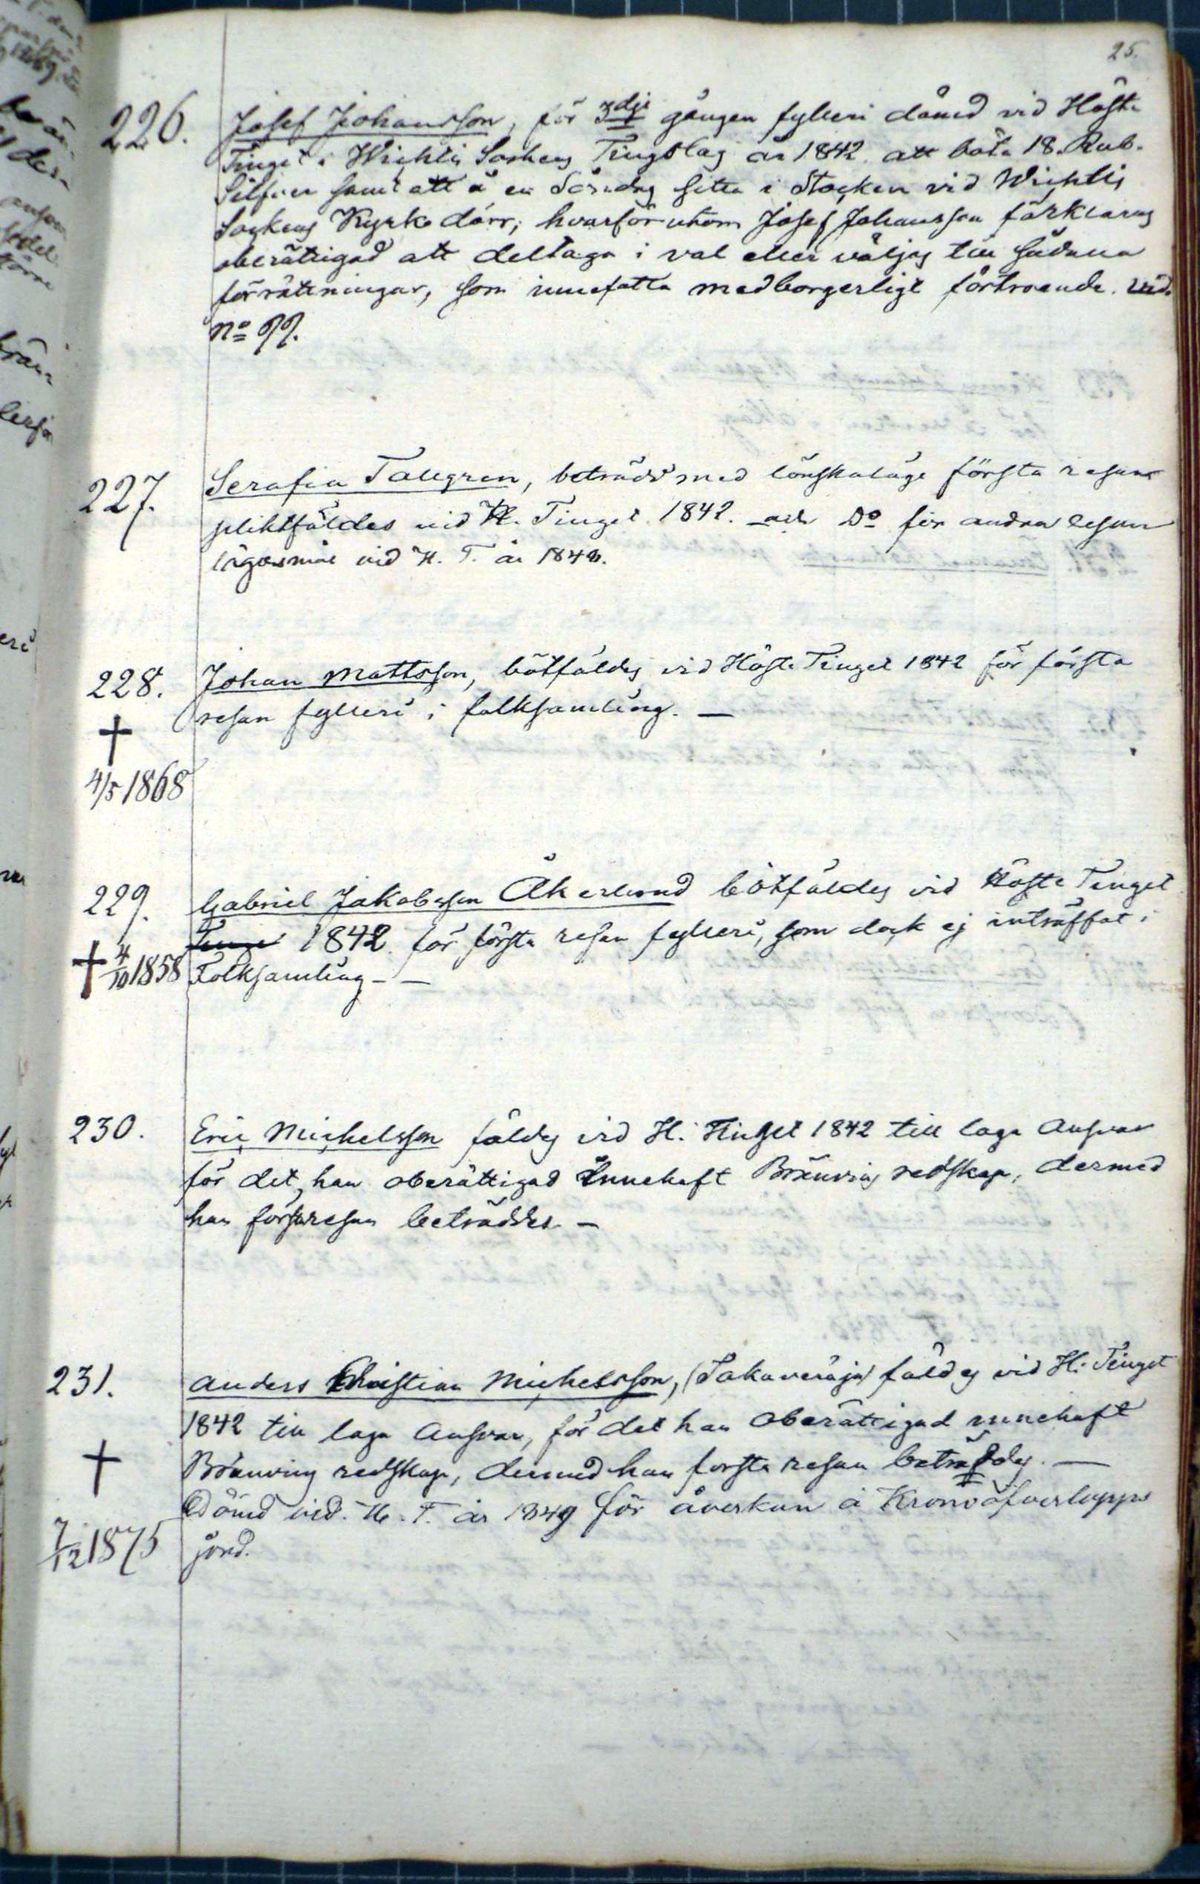 25.
226. Josef Johansson, för 3dje gången fylleri dömd vid Höste
Tinget i Wichtis Sockens Tingslag år 1842 att böta 18. Rub.
Silfver samt att å en Söndag sitta i Stocken vid Wichtis
Sockens Kyrko dörr; hvarförutom Josef Johansson förklaras
oberättigad att deltaga i val eller väljas till sådana
förrättningar, som innefatta medborgerligt förtroende. vid.
No 99.
227. Serafia Tallgren, beträdd med lönskaläge första resan
pliktfäldes vid H. Tinget 1842. och Do för andra resan
lägersmål vid H. T. år 1848.
228. Johan Mattsson, bötfäldes vid Höste Tinget 1842 för första
resan fylleri i folksamling. —
†
4/5 1868
229. Gabriel Jakobsson Åkerlund bötfäldes vid Höste Tinget
1842 för första resan fylleri, som dock ej inträffat i
† 4/10 1858 Folksamling - —
230. Eric Michelsson fäldes vid H. Tinget 1842 till laga Ansvar
för det han oberättigad innehaft Bränvins redskap, dermed
han första resan beträddes. —
231. Anders Christian Michelsson, fäldes vid H. Tinget
1842 till laga Ansvar, för det han Oberättigad innehaft
† Bränvins redskap, dermed han första resan beträddes. —
Dömd vid H. T. år 1849 för åverkan å Krono öfverlopps
7/12 1875 jord.